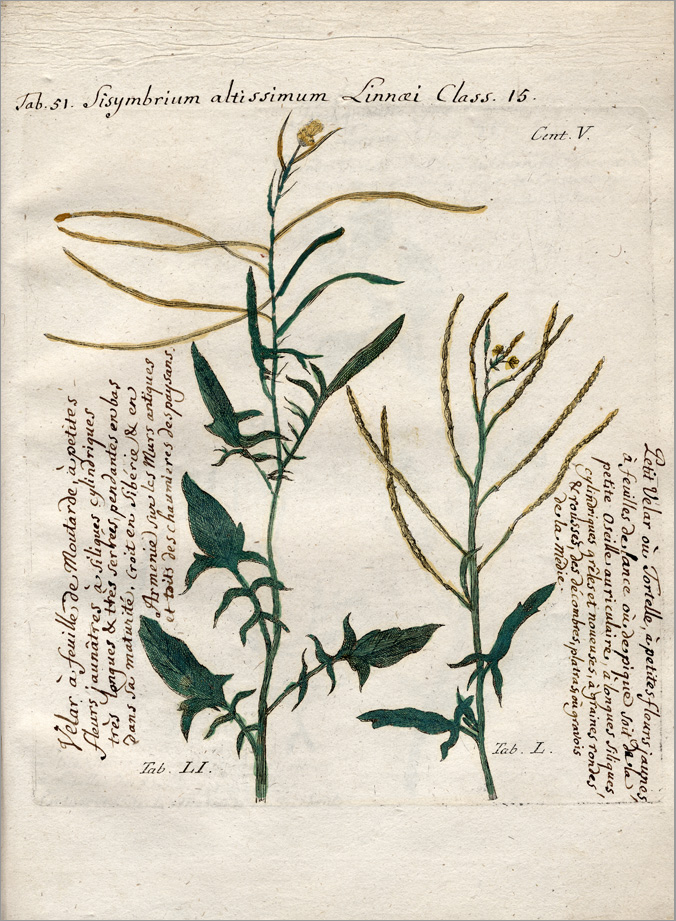 Tab. 51. Sisymbrium altissimum Linnæi Class. 15.
Cent. V.
Velar à feuille de Moutarde à petites
fleurs jaunâtres à siliques cylindriques
très longues & très serrées, pendantes en bas
dans sa maturité, Croit en Sibérie & en
Arménie sur les Murs antiques
et toits des chaumières des paysans.
Petit Velar où Tortelle, à petites fleurs jaunes
à feuilles de lance où de pique soit de la
petite Oseille auriculaire, à longues Siliques
Cylindriques grêles et noueuses, à graines rondes
& rousses, des décombres, platras, où gravois
de la Médie.
Tab. LI.
Tab. L.